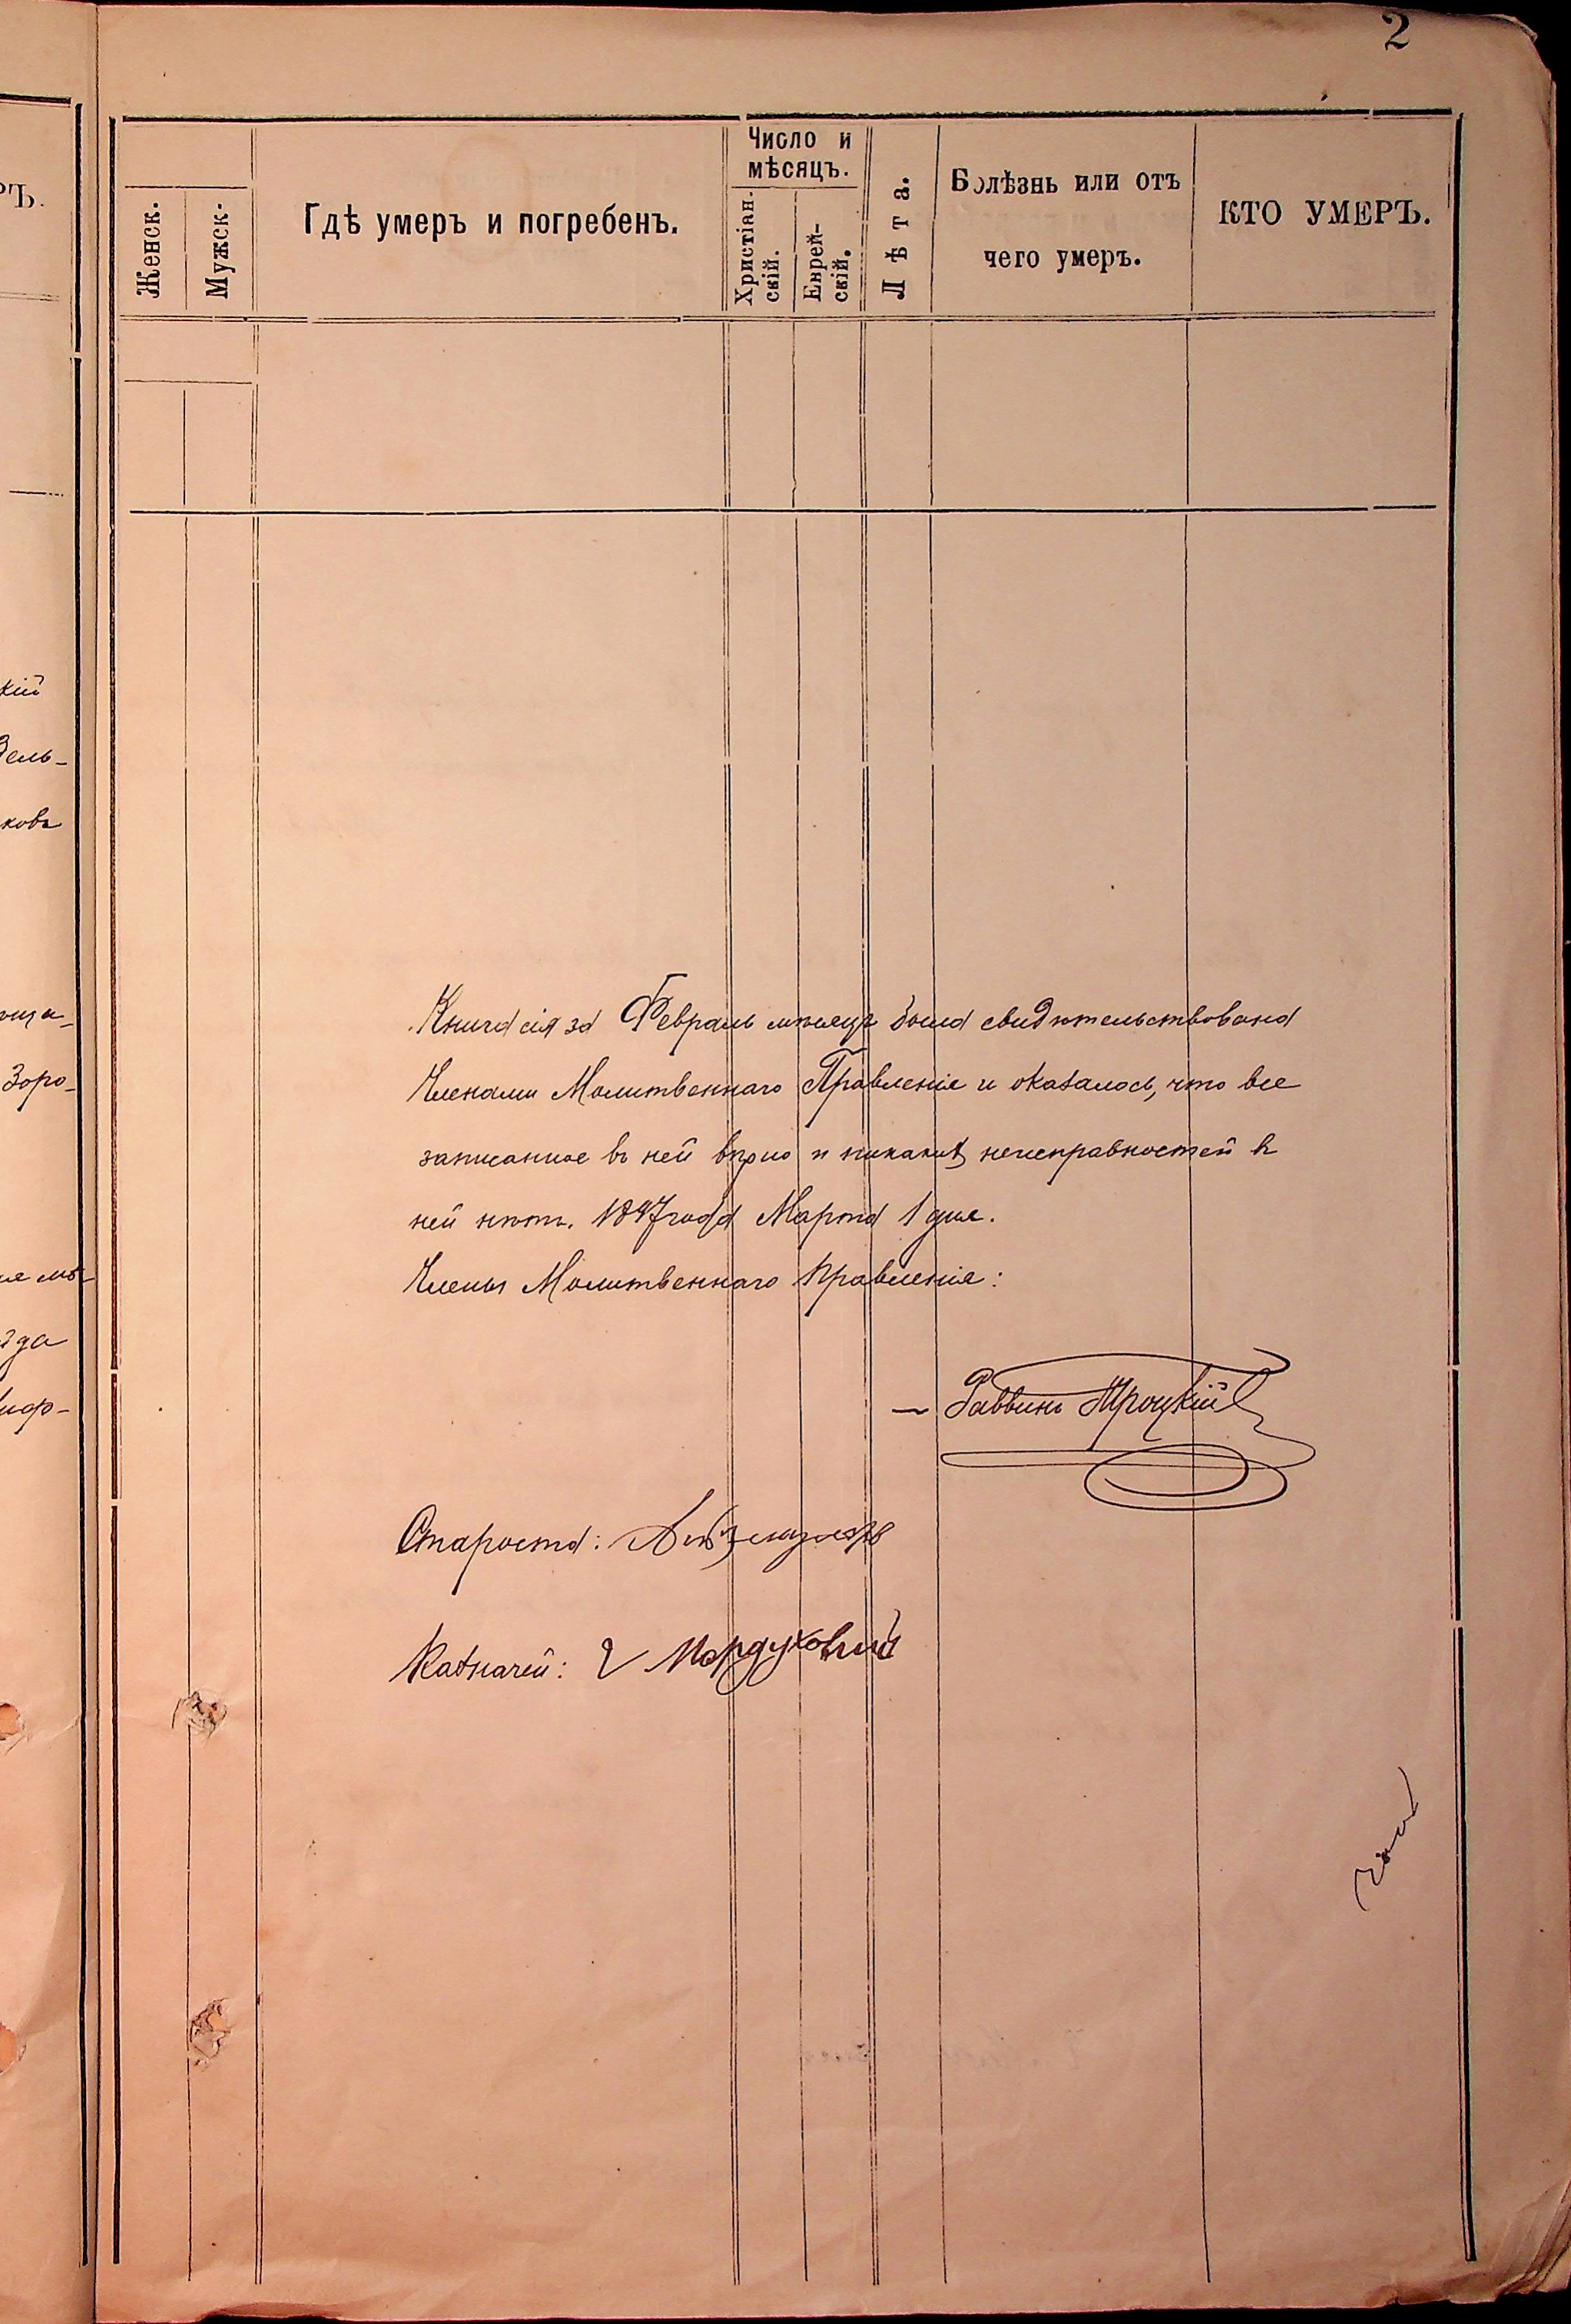 2
Женск.
Мужск.
Гдѣ умеръ и погребенъ.
Число и
мѣсяцъ.
Христіан-
скій.
Еврей-
скій.
Лѣта.
Болѣзнь или отъ
чего умеръ.
КТО УМЕРЪ.
Книга сія за Февраль мѣсяцъ была свидѣтельствована
Членами Молитвеннаго Правленія и оказалось, что все
записанное въ ней вѣрно и никакихъ неисправностей въ
ней нѣтъ. 1897 года Марта 1 дня.
Члены Молитвеннаго Правленія:
Раввинъ Троцкій
Староста:
Казначей: Мордуховичъ
кій
дель-
ковъ
Зоро-